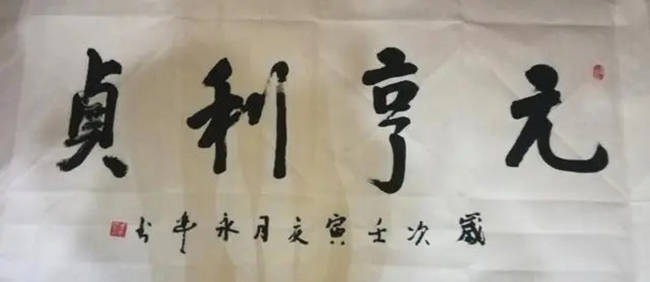 元亨利貞
歲次壬寅亥月永年书